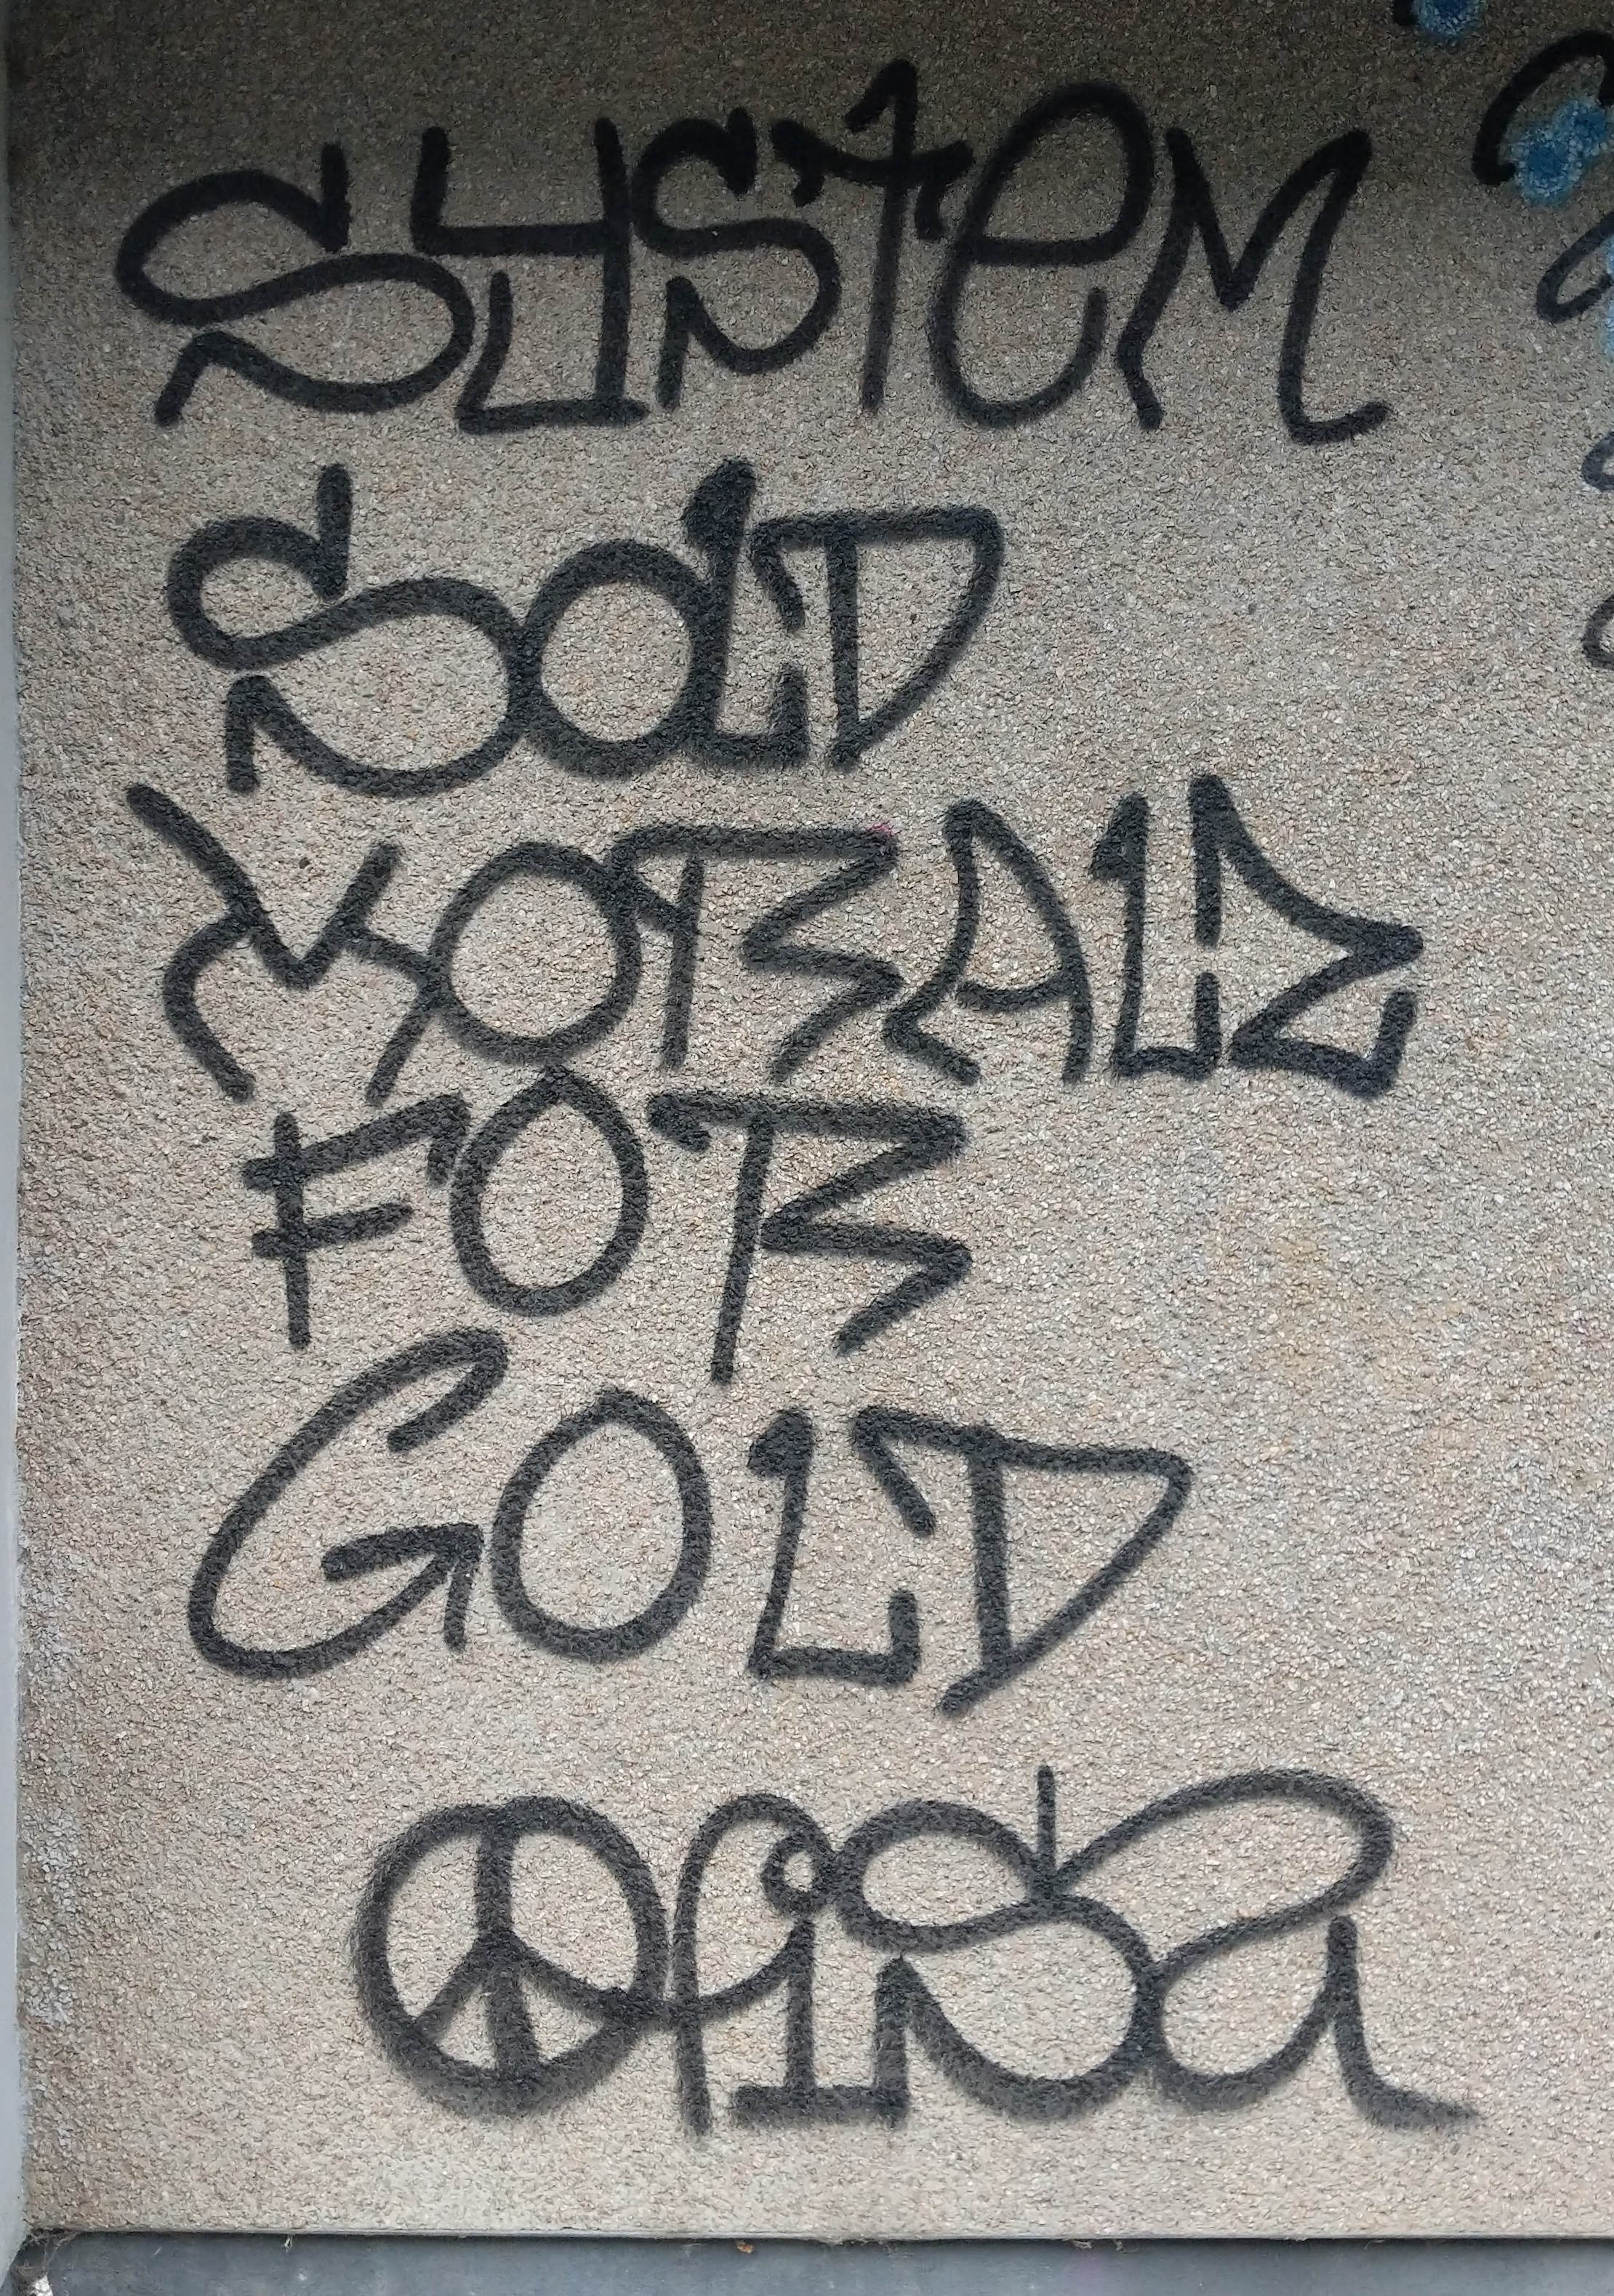 SYSTeM
SOLD
MORALZ
FOR
GOLD